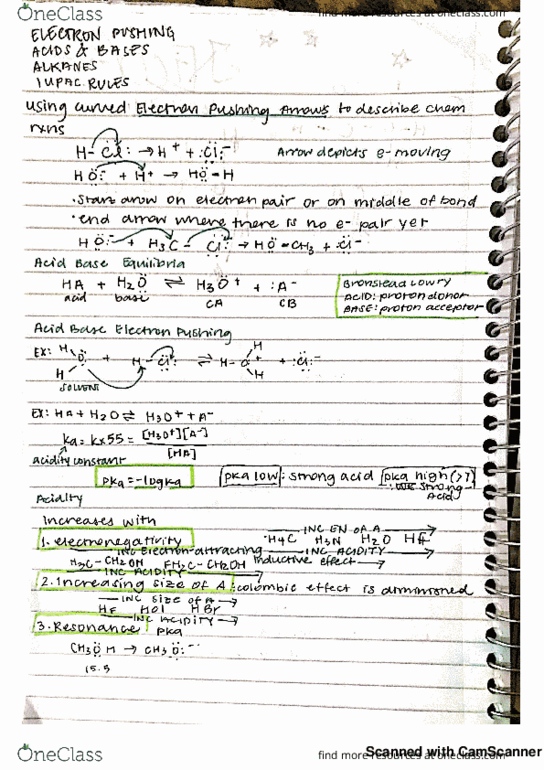 OneClass
find more resources at oneclass.com
ELECTRON PUSHING
ACIDS & BASES
ALKANES
IUPAC RULES
using curved Electron Pushing Arrows to describe chem
rxns
H-Cl: → H+ + :Cl:-
Arrow depicts e- moving
HÖ:- + H+ → HÖ-H
• Start arrow on electron pair or on middle of bond
• end arrow where there is no e- pair yet
HÖ:- + H3C - Cl: → HÖ-CH3 + :Cl:-
Acid Base Equilibria
HA + H2Ö ⇌ H3Ö+ + :A-
acid base CA CB
Bronstead Lowry
ACID: proton donor
BASE: proton acceptor
Acid Base Electron Pushing
H H
EX: O: + H-Cl: ⇌ H-O+ + :Cl:-
H H
SOLVENT
EX: HA + H2O ⇌ H3O+ + A-
Ka = K×55 = [H3O+][A-]
[HA]
acidity constant
pKa = -log Ka
pKa low: strong acid
pKa high (>7)
Acid
Acidity
Increases with
INC EN OF A →
1. electronegativity
H4C H3N H2O HF
INC Electron-attracting
INC ACIDITY →
H3C-CH2OH FH2C-CH2OH Inductive effect →
INC ACIDITY →
2. Increasing size of A: colombic effect is diminished
INC SIZE OF A →
HF HCl HBr
INC ACIDITY →
3. Resonance
pKa
CH3ÖH → CH3Ö:-
15.5
OneClass
find more resources at oneclass.com
Scanned with CamScanner